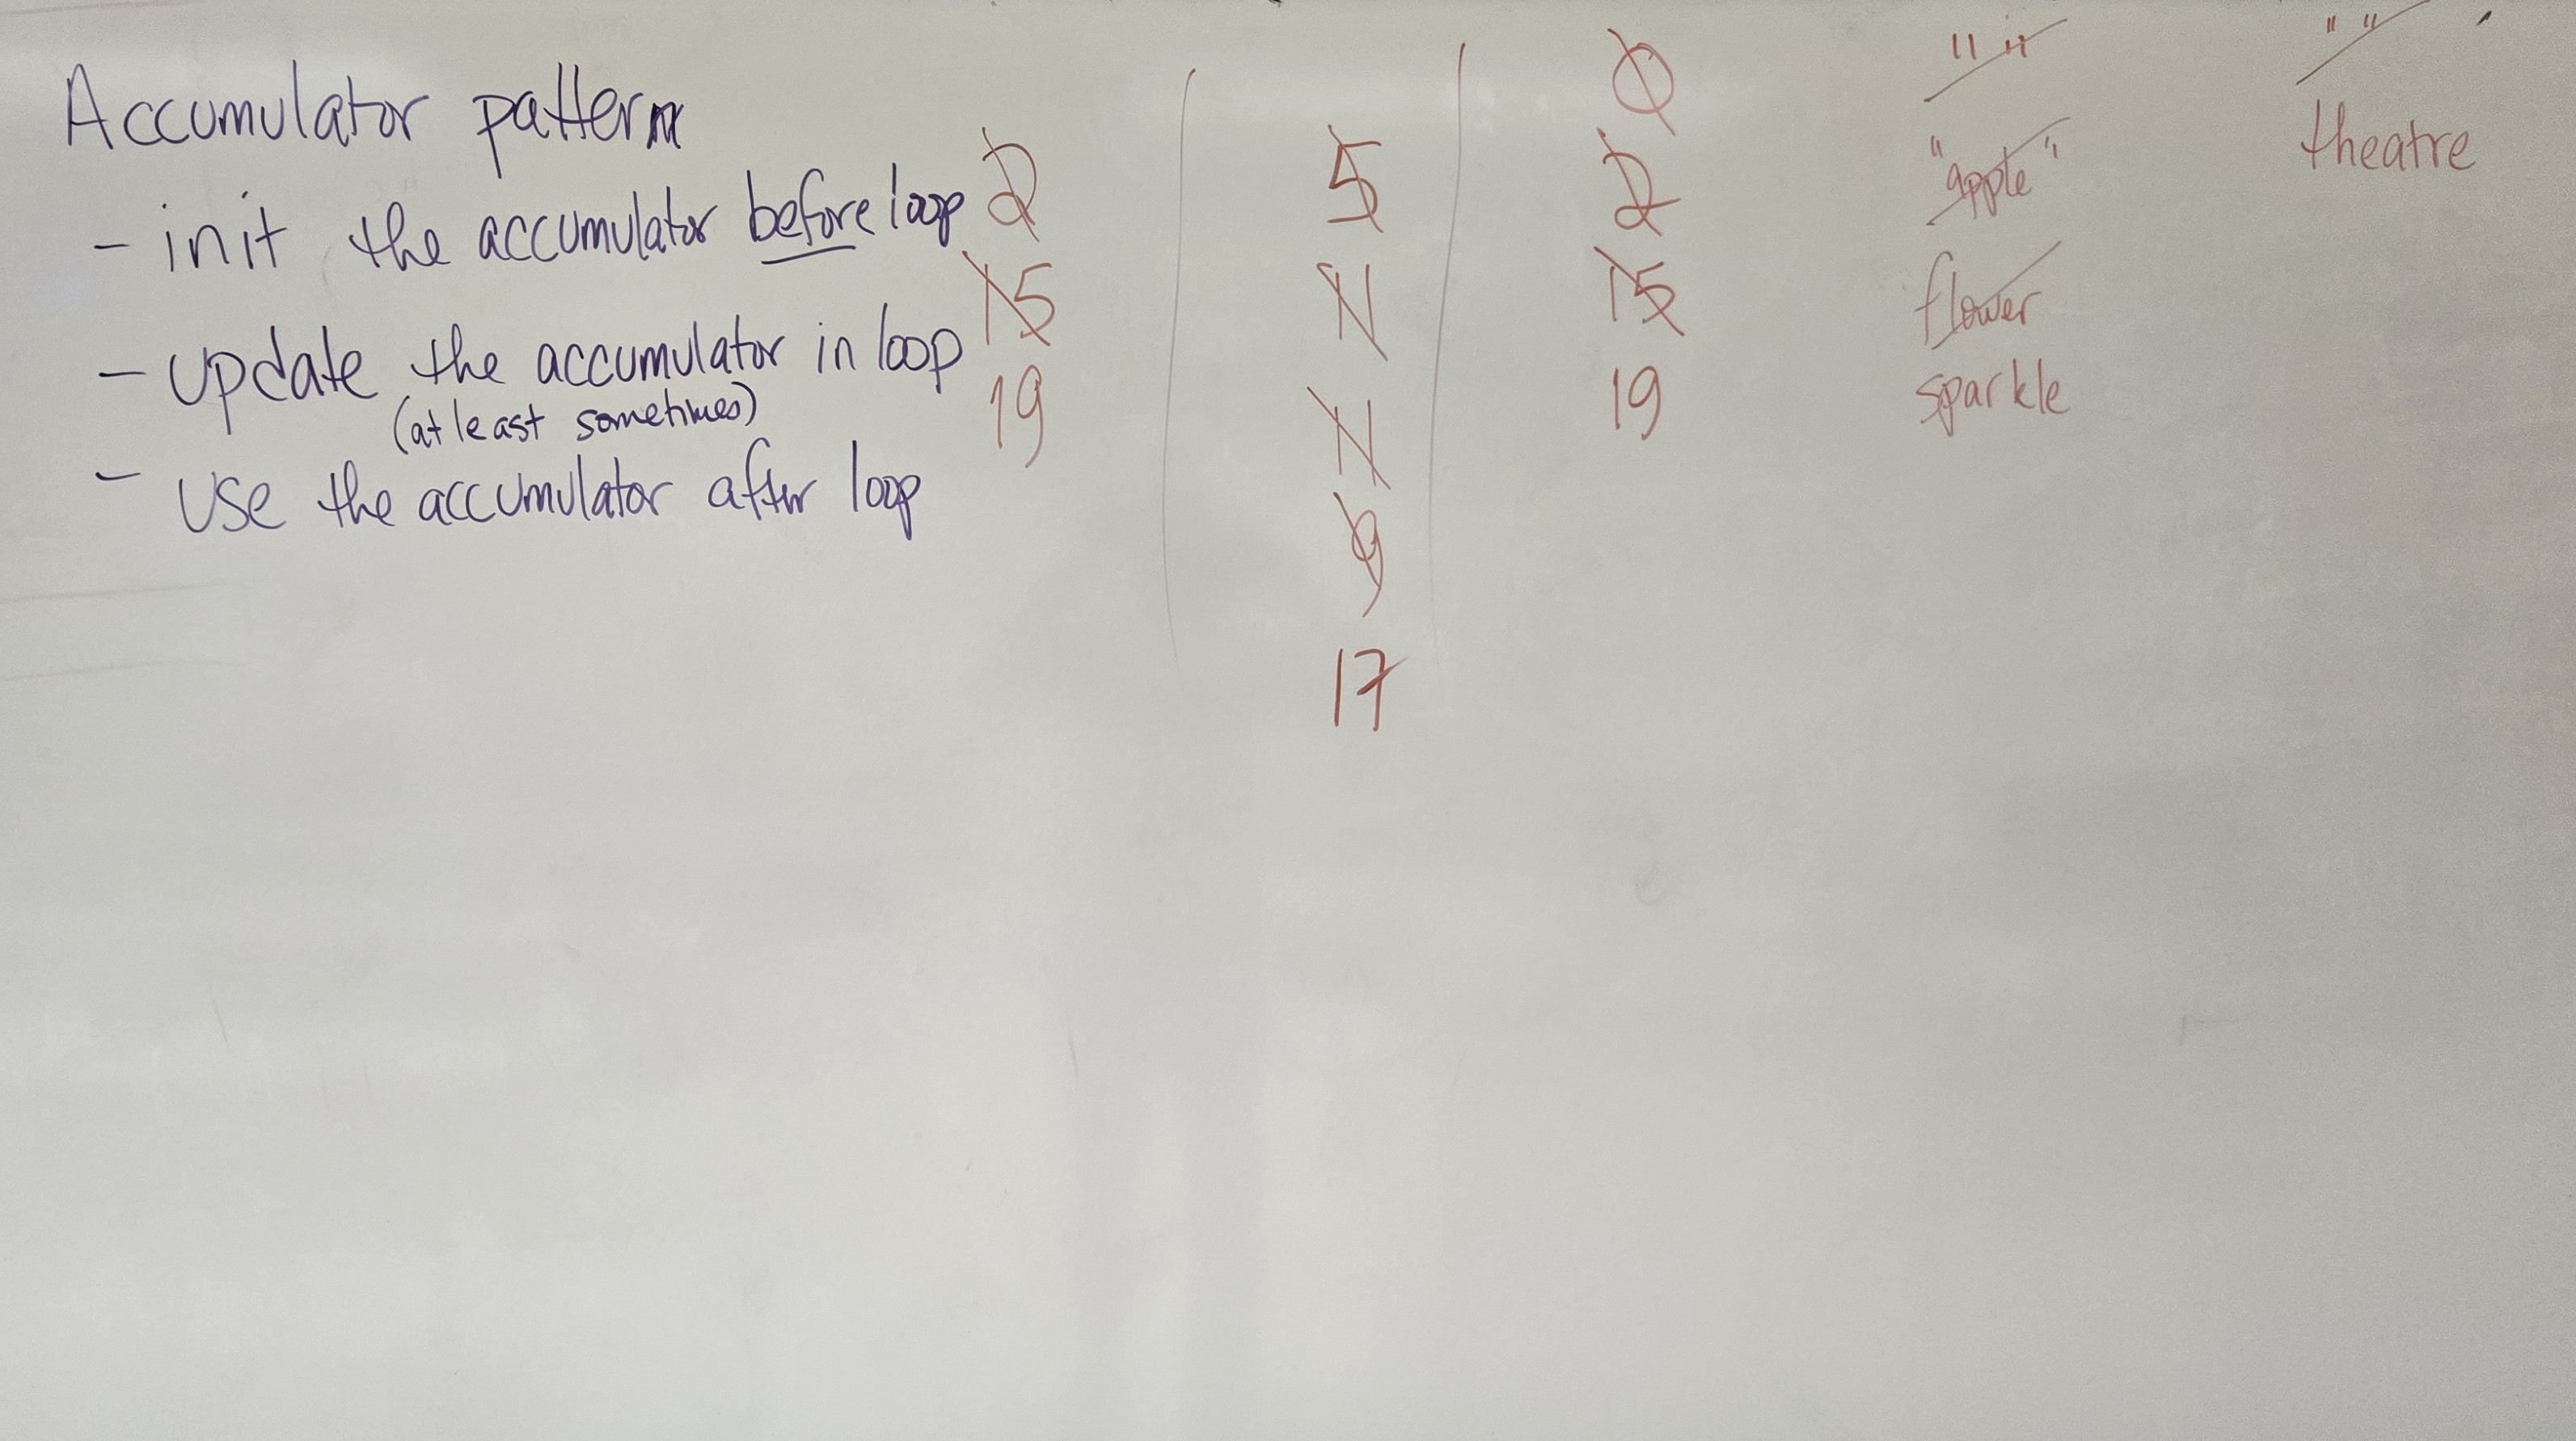 Accumulator pattern
- init the accumulator before loop
- update the accumulator in loop
(at least sometimes)
- use the accumulator after loop
2
15
19
5
9
17
0
2
15
19
" "
"apple"
flower
sparkle
" "
theatre